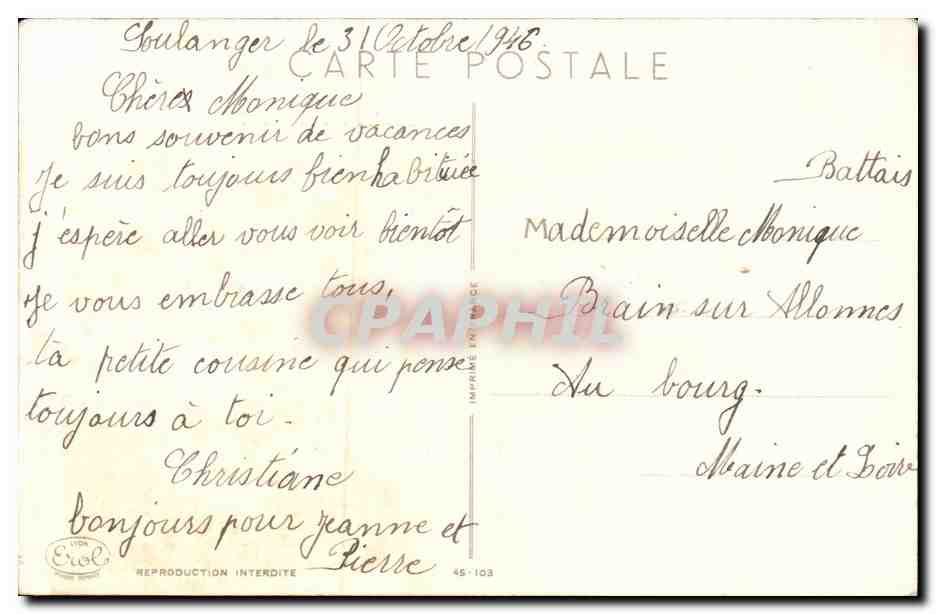 Soulanger le 31 Octobre 1946.
CARTE POSTALE
Chère Monique
bons souvenir de vacances
Je suis toujours bien habituée
j'espère aller vous voir bientôt
Je vous embrasse tous,
ta petite cousine qui pense
toujours à toi.
Christiane
bonjours pour Jeanne et
Pierre
LYON
Erol
REPRODUCTION INTERDITE
45-103
IMPRIMÉ EN FRANCE
CPAPHIL
Battais
Mademoiselle Monique
Brain sur Allonnes
Au bourg.
Maine et Loire